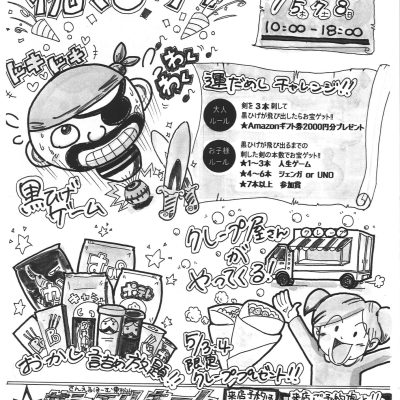 5土 7 8日
10:00-18:00
ドキドキ
わく
わく
運だめし チャレンジ!!
大人
ルール
剣を3本刺して
黒ひげが飛び出したらお宝ゲット!!
★Amazonギフト券2000円分プレゼント
お子様
ルール
黒ひげが飛び出るまでの
刺した剣の本数でお宝ゲット!!
★1〜3本 人生ゲーム
★4〜6本 ジェンガ or UNO
★7本以上 参加賞
黒ひげ
ゲーム
クレープ屋さん
が
やってくる!!
クレープ
おかし詰め放題!!
5/3.4
限定
クレーププレゼント!!